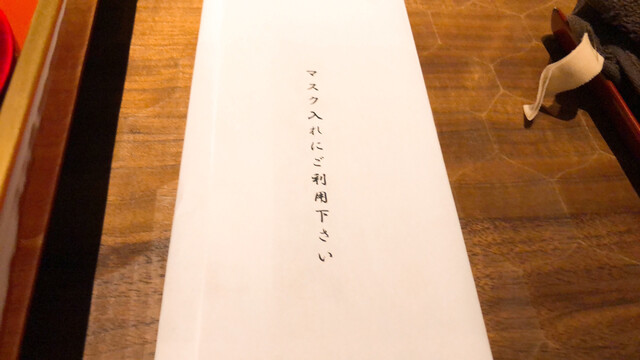 マスク入れにご利用下さい